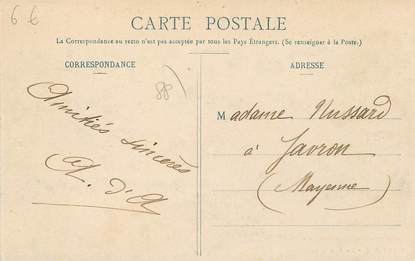 6 €
CARTE POSTALE
La Correspondance au recto n'est pas acceptée par tous les Pays Étrangers. (Se renseigner à la Poste.)
CORRESPONDANCE
ADRESSE
88
Amitiés sincères
A. d'A
Madame Nussard
à Javron
(Mayenne)